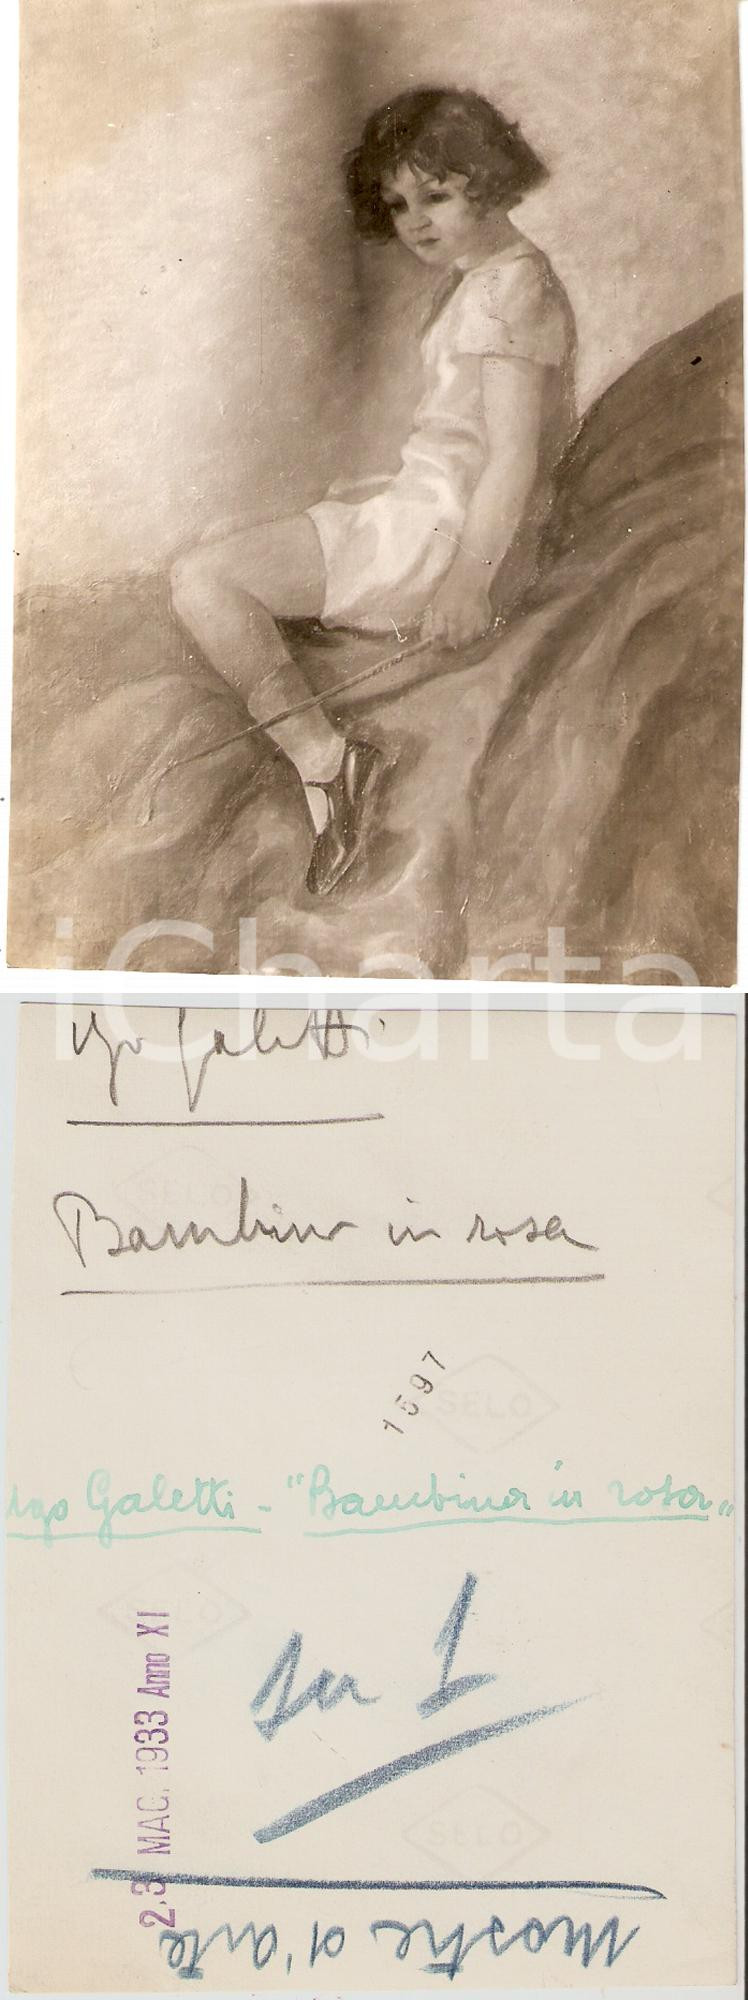 iCharta
Ugo Galetti
Bambina in rosa
SELO
1597
SELO
Ugo Galetti - "Bambina in rosa"
SELO
23 MAG. 1933 Anno XI
su 1
SELO
Mostre d'arte